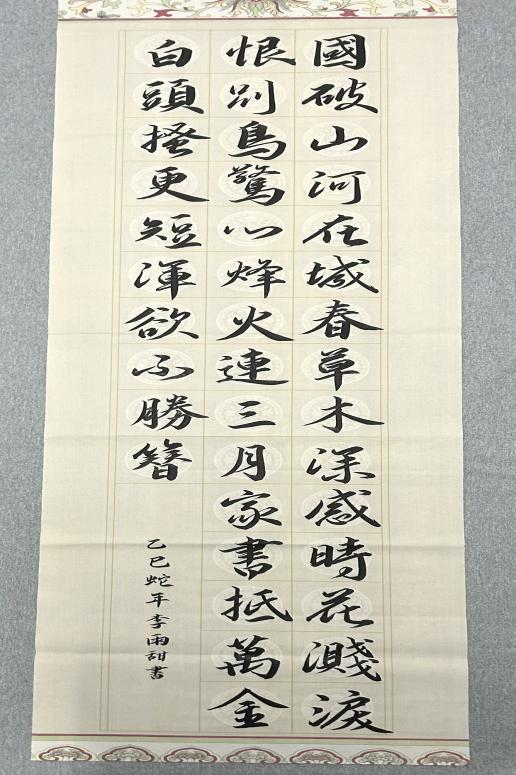 國破山河在城春草木深感時花濺淚
恨別鳥驚心烽火連三月家書抵萬金
白頭搔更短渾欲不勝簪
乙巳蛇年李雨甜書